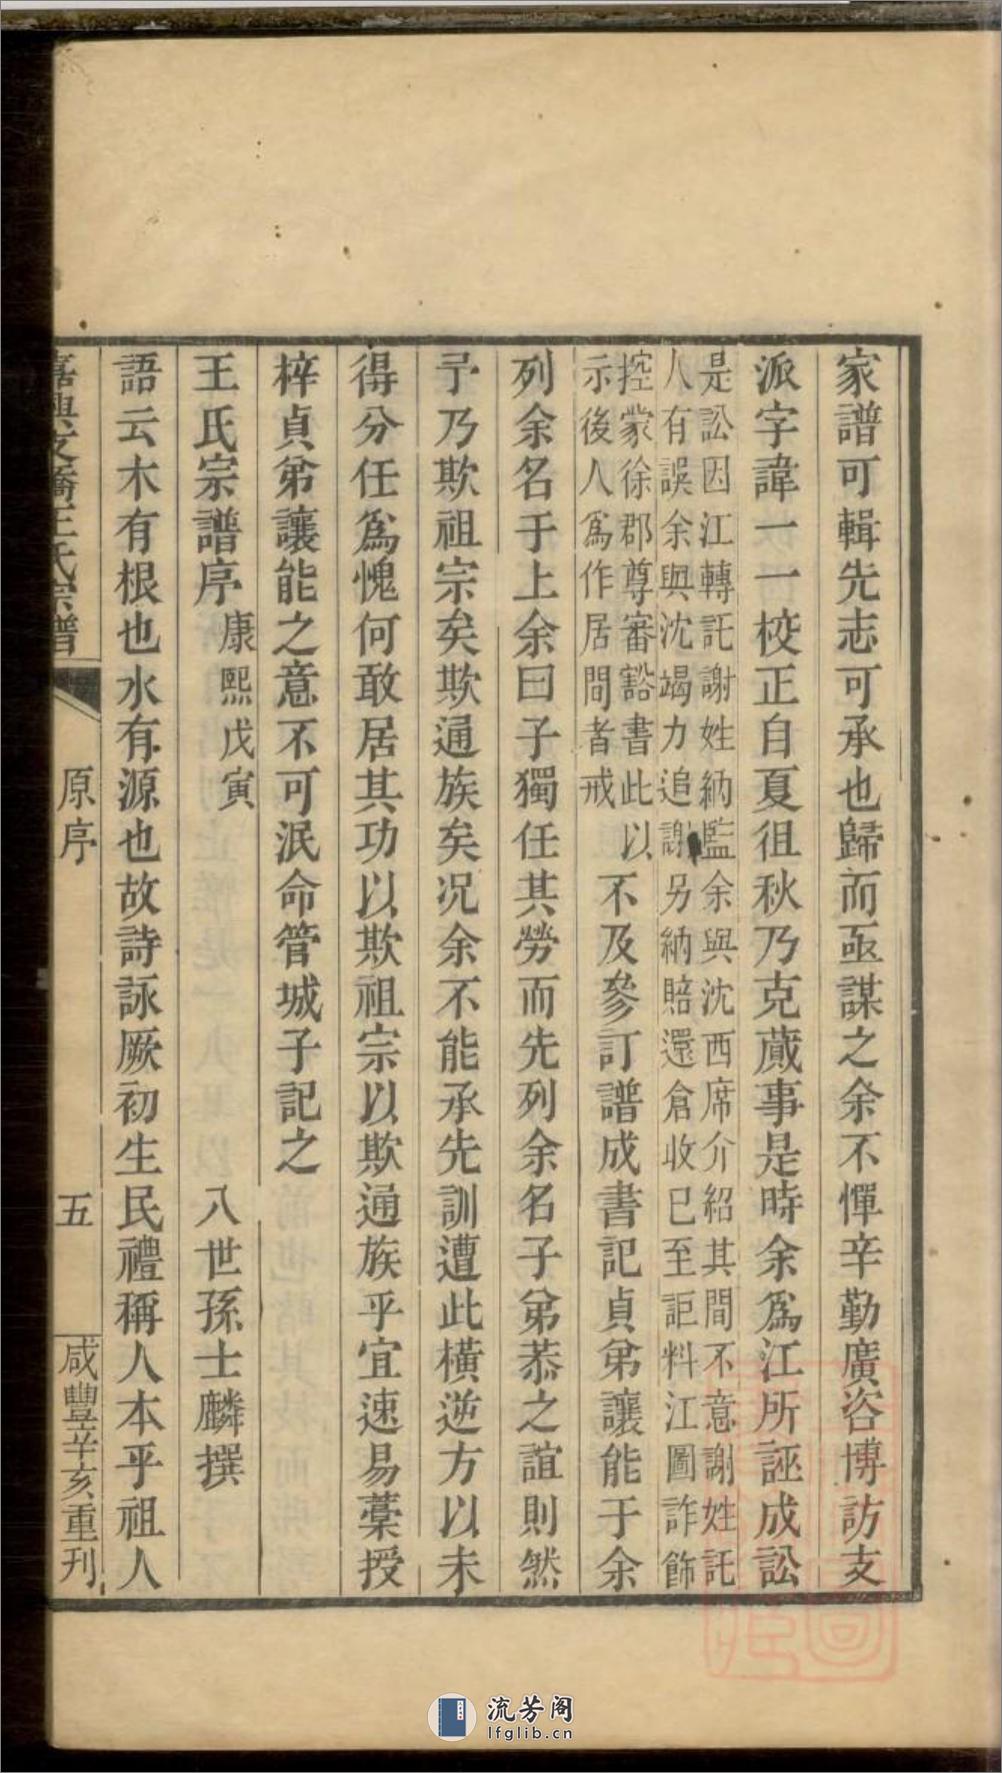 家譜可輯先志可承也歸而亟謀之余不憚辛勤廣咨博訪支
派字諱一一校正自夏徂秋乃克蕆事是時余爲江所誣成訟
是訟因江轉託謝姓納監余與沈西席介紹其間不意謝姓託
人有誤余與沈竭力追謝另納賠還倉收已至詎料江圖詐飾
控蒙徐郡尊審豁書此以
示後人爲作居間者戒
不及參訂譜成書記貞弟讓能于余
列余名于上余曰子獨任其勞而先列余名子弟恭之誼則然
予乃欺祖宗矣欺通族矣况余不能承先訓遭此橫逆方以未
得分任爲愧何敢居其功以欺祖宗以欺通族乎宜速易藁授
梓貞弟讓能之意不可泯命管城子記之
王氏宗譜序 康熙戊寅 八世孫士麟撰
語云木有根也水有源也故詩詠厥初生民禮稱人本乎祖人
嘉興文橋王氏宗譜 原序 五 咸豐辛亥重刊
流芳阁
lfglib.cn